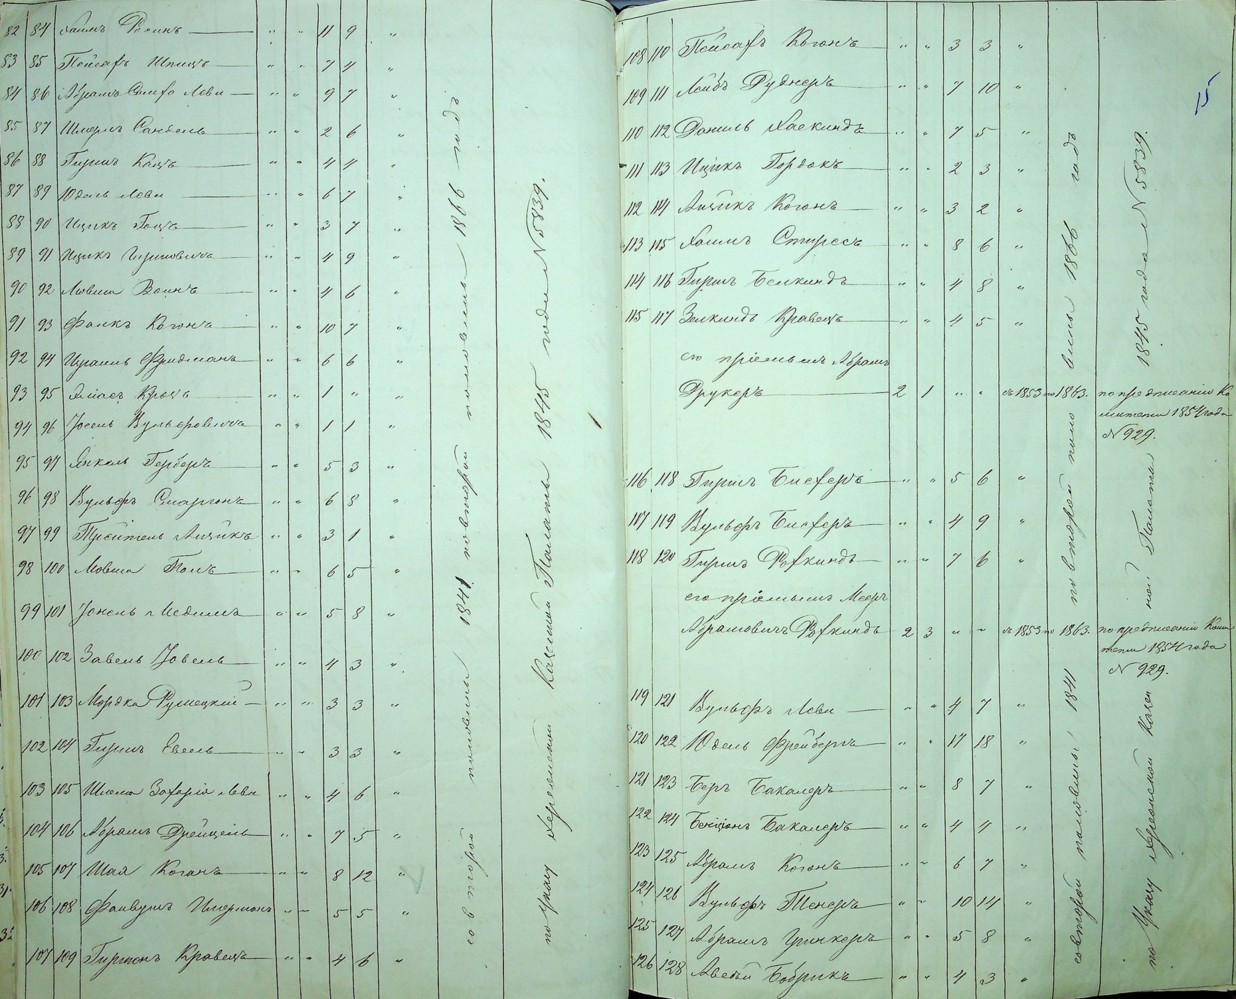 82 84 Хаимъ Фаинъ " " 11 9 "
83 85 Пейсахъ Шпицъ " " 7 4 "
84 86 Абрамъ Леви " " 9 7 "
85 87 " " 2 6 "
86 88 Гиршъ Кацъ " " 4 4 "
87 89 Юдель Леви " " 6 7 "
88 90 Ицикъ " " 3 7 "
89 91 Ицикъ Гиршовичъ " " 4 9 "
90 92 Мовша " " 4 6 "
91 93 Фалкъ Когонъ " " 10 7 "
92 94 Израиль Фридманъ " " 6 6 "
93 95 " " 1 " "
94 96 Іосель Вульфовичъ " " 1 1 "
95 97 Янкель Герберъ " " 5 3 "
96 98 Вульфъ " " 6 8 "
97 99 Трейтель Айзикъ " " 3 1 "
98 100 Мовша " " 6 5 "
99 101 " " 5 8 "
100 102 Завель Іовель " " 4 3 "
101 103 Мордка Румецкій " " 3 3 "
102 104 Гиршъ Евель " " 3 3 "
103 105 Шлема Захарія Леви " " 4 6 "
104 106 Абрамъ " " 7 5 "
105 107 Шая Коганъ " " 8 12 "
106 108 Файвушъ " " 5 5 "
107 109 Гиршонъ Кравецъ " " 4 6 "
со второй половины 1841 по второй половины 1866 года
по Указу Херсонской Казенной Палаты 1845 года N 5839.
15
108 110 Пейсахъ Когонъ " " 3 3 "
109 111 Лейбъ Рудперъ " " 7 10 "
110 112 Даниль Хаскиндъ " " 7 5 "
111 113 Ицикъ Гордокъ " " 2 3 "
112 114 Айзикъ Когонъ " " 3 2 "
113 115 Хаимъ " " 8 6 "
114 116 Гиршъ Белкиндъ " " 4 8 "
115 117 Зелкиндъ Кравецъ " " 4 5 "
его пріемышъ Абрамъ
Друкеръ 2 1 " " съ 1853 по 1863. по предписанію Ко
митета 1854 года
N 929.
116 118 Гиршъ Бисхеръ " " 5 6 "
117 119 Вульфъ Бисхеръ " " 4 9 "
118 120 Гиршъ Ривкиндъ " " 7 6 "
его пріемышъ Мееръ
Абрамовичъ Ривкиндъ 2 3 " " съ 1853 по 1863. по предписанію Коми
тета 1854 года
N 929.
119 121 Вульфъ Леви " " 4 7 "
120 122 Юдель Фрейбергъ " " 17 18 "
121 123 Беръ Бакалеръ " " 8 7 "
122 124 Бенціонъ Бакалеръ " " 4 4 "
123 125 Абрамъ Коганъ " " 6 7 "
124 126 Вульфъ Тенеръ " " 10 14 "
125 127 Абрамъ Гринкеръ " " 5 8 "
126 128 Авсей Бобрикъ " " 4 3 "
со второй половины 1841 по второй 1866 годъ
по Указу Херсонской Казенной Палаты 1845 года N 5839.